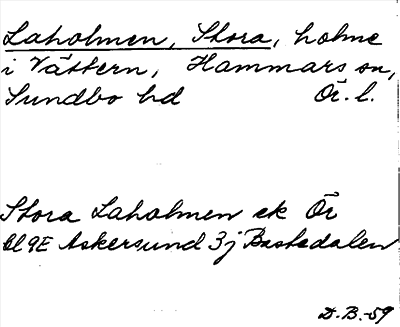 Laholmen, Stora, holme
i Vättern, Hammars sn,
Sundbo hd Ör. l.
Stora Laholmen ek Ör
bl 9E Askersund 3j Bastedalen
D.B.-59